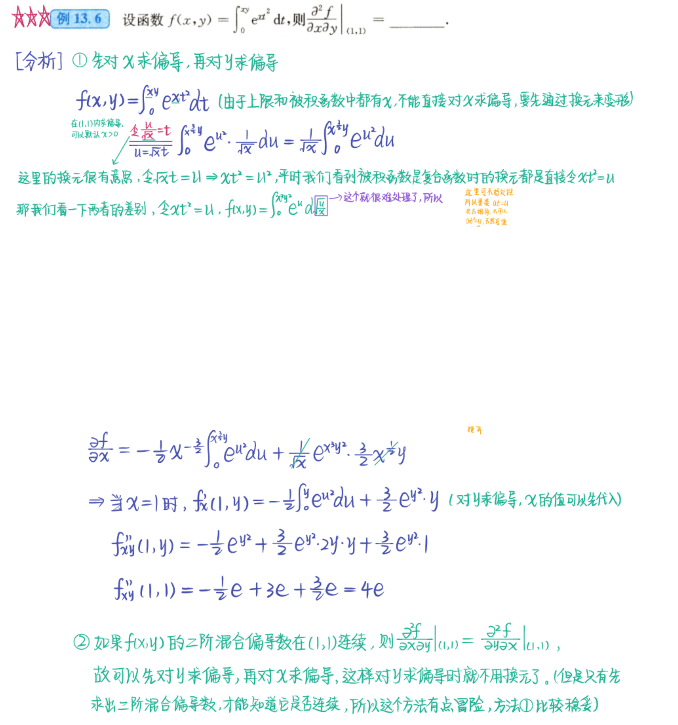 例 13.6 设函数 f(x,y) = ∫₀^{xy} e^{xt²} dt,则 ∂²f/∂x∂y |₍₁,₁₎ = ______.
[分析] ① 先对x求偏导,再对y求偏导
f(x,y)=∫₀^{xy} e^{xt²}dt (由于上限和被积函数中都有x,不能直接对x求偏导,要先通过换元来变形)
在(1,1)内求偏导,
可以默认x>0
令 u/√x = t
u=√x t
∫₀^{x^{3/2}y} e^{u²}·1/√x du = 1/√x ∫₀^{x^{3/2}y} e^{u²}du
这里的换元很有意思,令√x t = u ⇒ xt² = u²,平时我们看到被积函数是复合函数时的换元都是直接令xt²=u
那我们看一下两者的差别,令xt²=u, f(x,y)=∫₀^{x³y²} e^u d√(u/x) →这个就很难处理了,所以
∂f/∂x = -1/2 x^{-3/2} ∫₀^{x^{3/2}y} e^{u²}du + 1/√x e^{x³y²}·3/2 x^{1/2}y
⇒ 当x=1时, f'x(1,y) = -1/2 ∫₀^y e^{u²}du + 3/2 e^{y²}·y (对y求偏导,x的值可以先代入)
f''xy(1,y) = -1/2 e^{y²} + 3/2 e^{y²}·2y·y + 3/2 e^{y²}·1
f''xy(1,1) = -1/2 e + 3e + 3/2 e = 4e
② 如果f(x,y)的二阶混合偏导数在(1,1)连续,则 ∂²f/∂x∂y |₍₁,₁₎ = ∂²f/∂y∂x |₍₁,₁₎ ,
故可以先对y求偏导,再对x求偏导,这样对y求偏导时就不用换元了。(但是只有先
求出二阶混合偏导数,才能知道它是否连续,所以这个方法有点冒险,方法①比较稳妥)